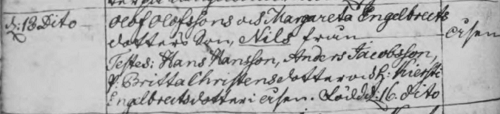 d: 18 Dito Olof Olofssons och Margareta Engelbrects
dotters Son, Nils från Åsen
Testes: Hans Hansson, Anders Jacobsson,
H. Britta Christensdotter och Sk: Kierstin
Engelbrectsdotter i Åsen. Född d: 16. Dito